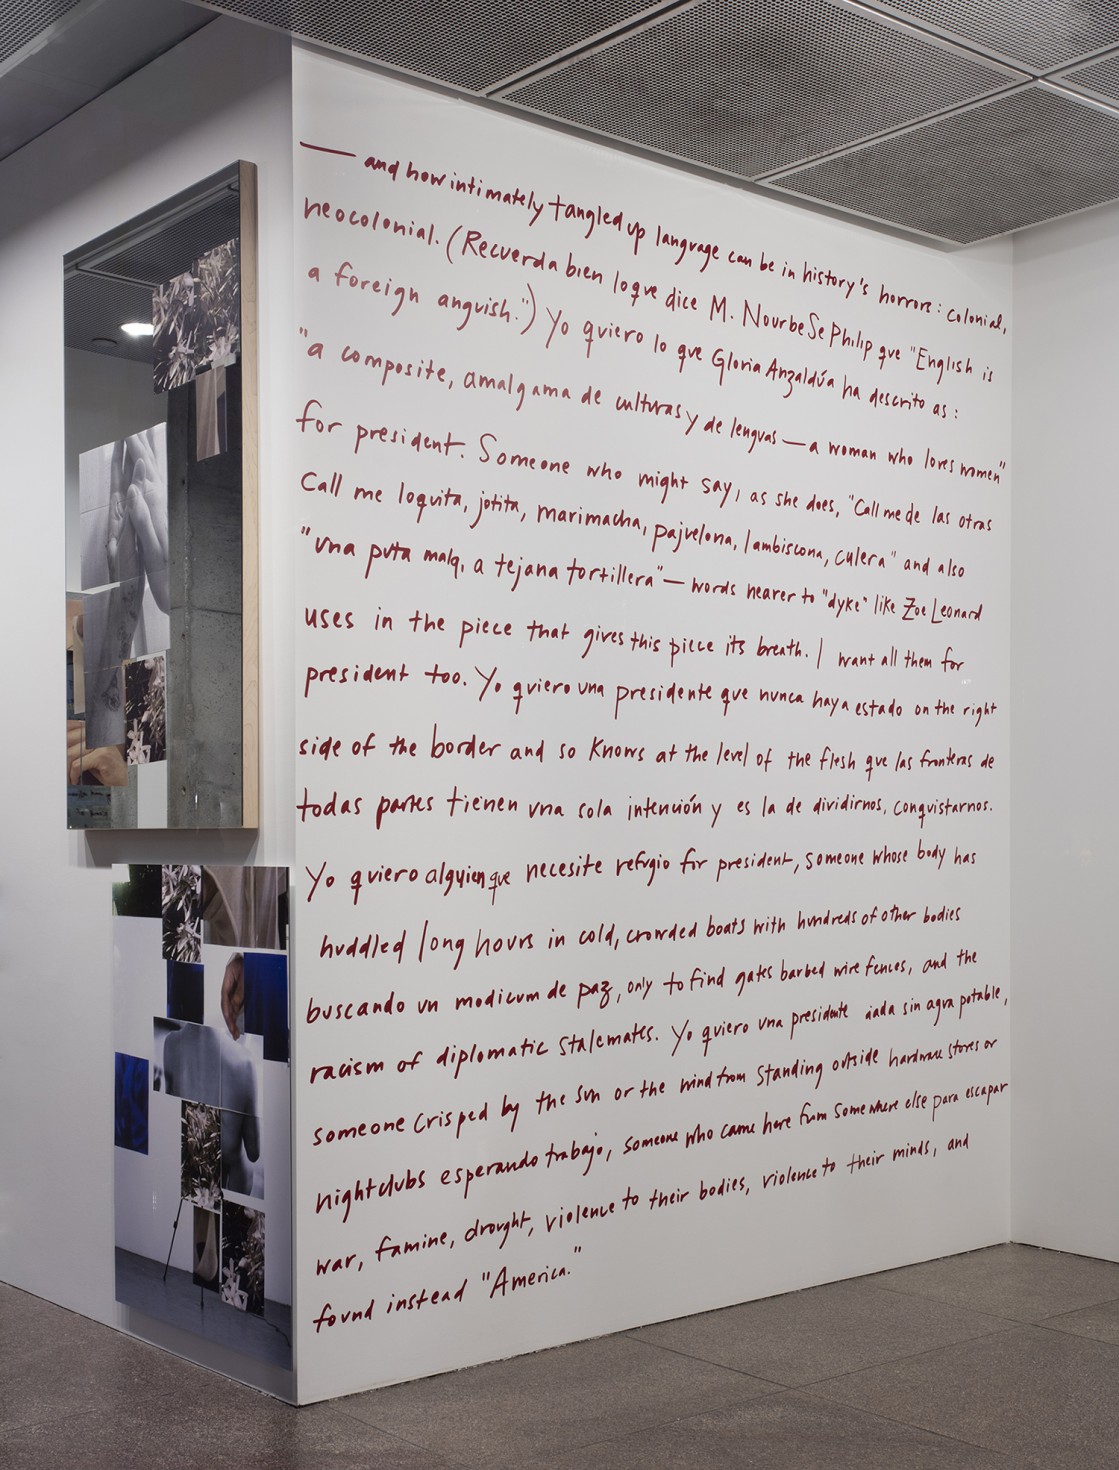 — and how intimately tangled up language can be in history's horrors: colonial,
neocolonial. (Recuerda bien lo que dice M. NourbeSe Philip que "English is
a foreign anguish.") Yo quiero lo que Gloria Anzaldúa ha descrito as:
"a composite, amalgama de culturas y de lenguas — a woman who loves women"
for president. Someone who might say, as she does, "Call me de las otras
Call me loquita, jotita, marimacha, pajuelona, lambiscona, culera" and also
"una puta mala, a tejana tortillera" — words nearer to "dyke" like Zoe Leonard
uses in the piece that gives this piece its breath. I want all them for
president too. Yo quiero una presidente que nunca haya estado on the right
side of the border and so knows at the level of the flesh que las fronteras de
todas partes tienen una sola intención y es la de dividirnos, conquistarnos.
Yo quiero alguien que necesite refugio for president, someone whose body has
huddled long hours in cold, crowded boats with hundreds of other bodies
buscando un modicum de paz, only to find gates barbed wire fences, and the
racism of diplomatic stalemates. Yo quiero una presidente sin agua potable,
someone crisped by the sun or the wind from standing outside hardware stores or
nightclubs esperando trabajo, someone who came here from somewhere else para escapar
war, famine, drought, violence to their bodies, violence to their minds, and
found instead "America."